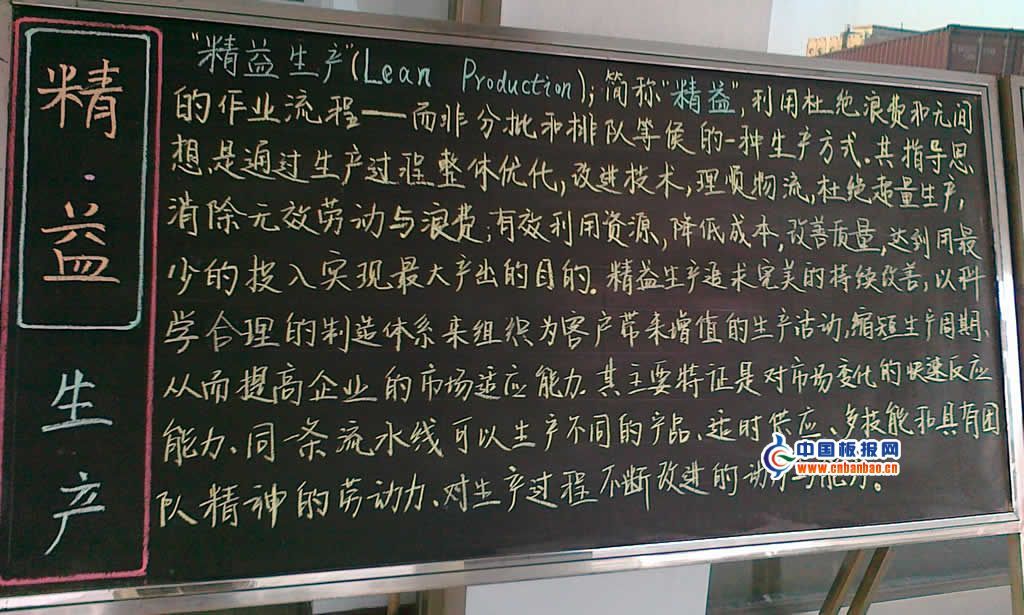 精·益
生产
"精益生产"(Lean Production);简称"精益",利用杜绝浪费和无间
的作业流程——而非分批和排队等候的一种生产方式.其指导思
想是通过生产过程整体优化,改进技术,理顺物流,杜绝超量生产,
消除无效劳动与浪费,有效利用资源,降低成本,改善质量,达到用最
少的投入实现最大产出的目的.精益生产追求完美的持续改善,以科
学合理的制造体系来组织为客户带来增值的生产活动,缩短生产周期、
从而提高企业的市场适应能力.其主要特征是对市场变化的快速反应
能力、同一条流水线可以生产不同的产品、适时供应、多技能和具有团
队精神的劳动力、对生产过程不断改进的动力与能力。
中国板报网
www.cnbanbao.cn